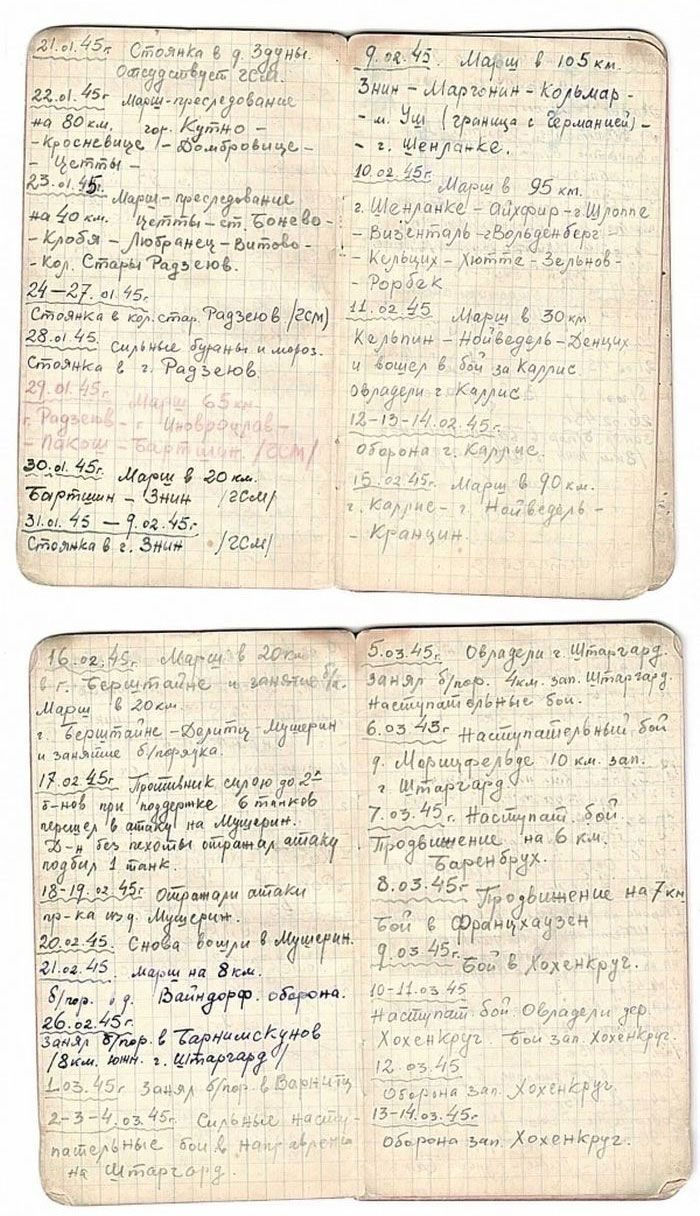 21.01.45г. Стоянка в д. Здуны.
Отсудствует ГСМ.
22.01.45г Марш-преследование
на 80 км. гор. Кутно -
- Кросневице - Домбровице -
- Цетты -
23.01.45г. Марш-преследование
на 40 км. Цетты - ст. Бонево -
- Клобя - Любранец - Витово -
- Кол. Стары Радзеюв.
24-27.01.45г.
Стоянка в кол. стар. Радзеюв /ГСМ/
28.01.45. сильные бураны и мороз.
Стоянка в г. Радзеюв.
29.01.45г. Марш 65 км.
г. Радзеюв - г. Иновроцлав -
- Пакош - Бартшин. /ГСМ/
30.01.45г. Марш в 20 км.
Бартшин - Знин /ГСМ/
31.01.45 - 9.02.45г
Стоянка в г. Знин /ГСМ/
9.02.45. Марш в 105 км.
Знин - Маргонин - Кольмар -
- м. Уш (граница с Германией) -
- г. Шенланке.
10.02.45г. Марш в 95 км.
г. Шенланке - Айхфир - г. Шлоппе
- Визенталь - г Вольденберг -
- Кельцих - Хютте - Зельнов -
- Рорбек
11.02.45 Марш в 30 км
Кельпин - Нойведель - Денцих
и вошел в бой за Каллис
овладели г Каллис
12-13-14.02.45г.
оборона г. Каллис.
15.02.45г. Марш в 90 км.
г. Каллис - г. Нойведель -
- Кранцин.
16.02.45г. Марш в 20 км
в г. Берштайне и занятие б/п.
Марш в 20 км.
г. Берштайне - Делитц - Мушерин
и занятие б/порядка.
17.02.45г Противник силою до 2х
б-нов при поддержке 6 танков
перешел в атаку на Мушерин.
Д-н без пехоты отражал атаку
подбил 1 танк.
18-19.02.45г Отражали атаки
пр-ка из д. Мушериж.
20.02.45. Снова вошли в Мушерин.
21.02.45. марш на 8 км.
б/пор. д. Вайндорф. оборона.
26.02.45г.
занял б/пор. в Барнимскунов
/8 км. южн. г. Штаргард/
1.03.45г. Занял б/пор. в Варнитц
2-3-4.03.45г. Сильные насту-
пательные бои в направлении
на Штаргард.
5.03.45г. Овладели г. Штаргард.
занял б/пор. 4 км. зап. Штаргард.
Наступательные бои.
6.03.45г Наступательный бой
д. Морицфельде 10 км. зап.
г. Штаргард
7.03.45г. Наступат. бой.
Продвижение на 6 км.
Баренбрух.
8.03.45г Продвижение на 7 км
Бой в Францхаузен
9.03.45г. Бой в Хохенкруг.
10-11.03.45
Наступат. бой. Овладели дер.
Хохенкруг. Бои зап. Хохенкруг.
12.03.45
Оборона зап. Хохенкруг
13-14.03.45г
Оборона зап. Хохенкруг.